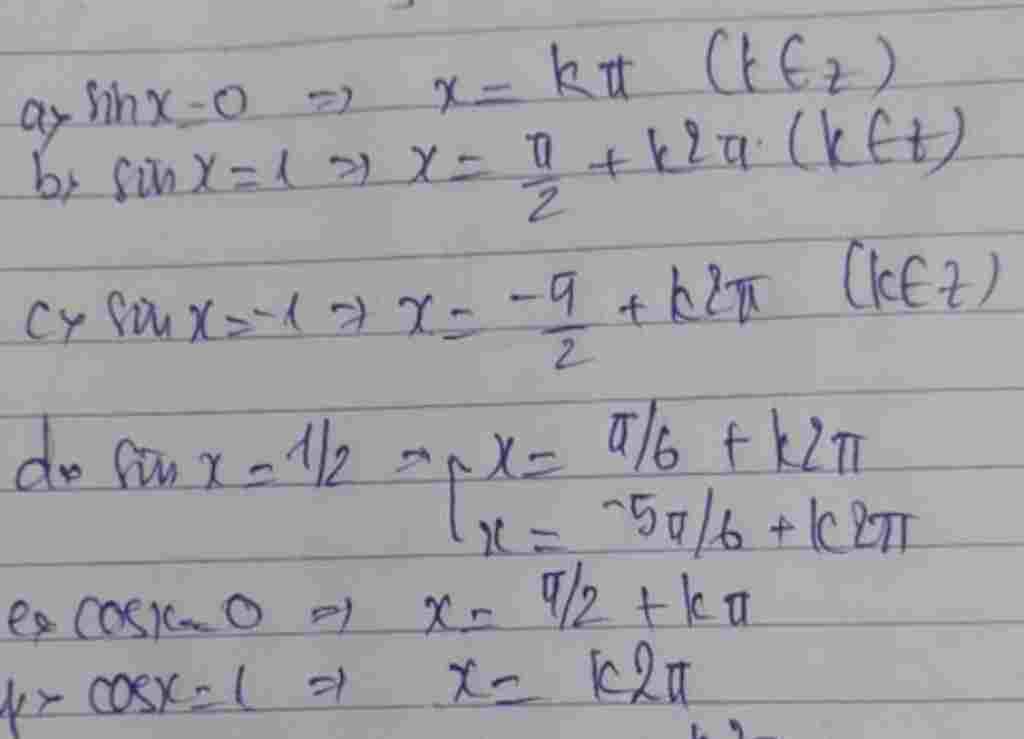 a, sin x = 0 => x = kπ (k ∈ z)
b, sin x = 1 => x = π/2 + k2π. (k ∈ z)
c, sin x = -1 => x = -π/2 + k2π (k ∈ z)
d, sin x = 1/2 => [ x = π/6 + k2π
x = -5π/6 + k2π
e, cosx = 0 => x = π/2 + kπ
f, cosx = 1 => x = k2π